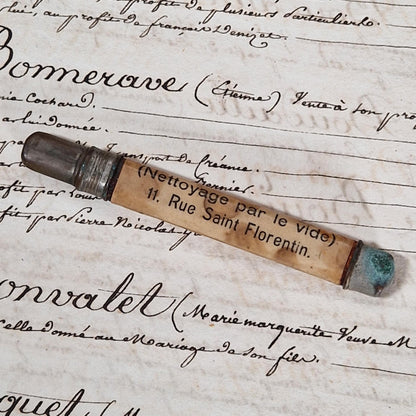 profit de plusieurs Particuliers.
au profit de françois Denizet.
Bonnerave (Etienne) Vente à son pro
Cochard.
donnée.
Transport de Créance.
Garnier.
profit par
(Nettoyage par le vide)
11, Rue Saint Florentin.
fit par Pierre Nicolas
onvalet (Marie marguerite Veuve M
elle donné au Mariage de son fils.
quet (M